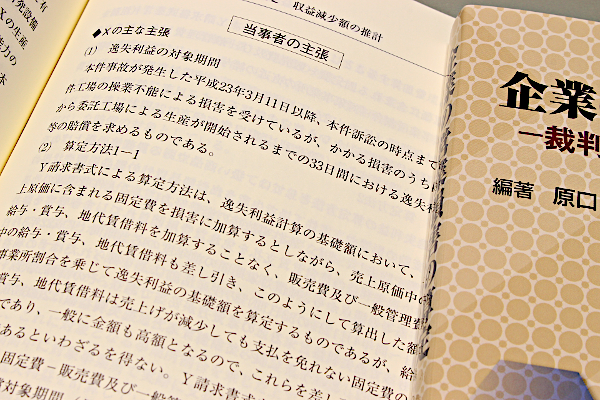 収益減少額の推計
当事者の主張
◆Xの主な主張
(1) 逸失利益の対象期間
本件事故が発生した平成23年3月11日以降、本件訴訟の時点まで
件工場の操業不能による損害を受けているが、かかる損害のうち
から委託工場による生産が開始されるまでの33日間における逸失利
等の賠償を求めるものである。
(2) 算定方法1-1
Y請求書式による算定方法は、逸失利益計算の基礎額において、
上原価に含まれる固定費を損害に加算するとしながら、売上原価中の
給与・賞与、地代賃借料を加算することなく、販売費及び一般管理費
中の給与・賞与、地代賃借料も差し引き、このようにして算出した額
事業所割合を乗じて逸失利益の基礎額を算定するものであるが、給
賞与、地代賃借料は売上げが減少しても支払を免れない固定費の
であり、一般に金額も高額となるので、これらを差し
あるといわざるを得ない。Y請求書式
固定費－販売費及び一般
対象期間
有
発設備
Xの生産
能力の
本
企業
―裁判
編著 原口